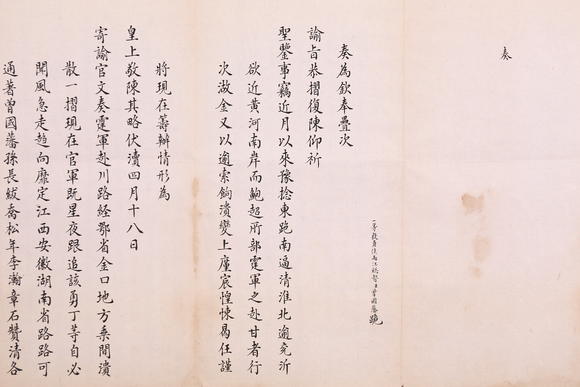 奏
一等毅勇侯兩江總督臣曾國藩跪
奏為欽奉疊次
諭旨恭摺復陳仰祈
聖鑒事竊近月以來豫捻東跑南逼清淮北逾兗沂
欲近黃河南岸而鮑超所部霆軍之赴甘者行
次金又以逾索餉潰變上廑宸惶悚曷任謹
將現在籌辦情形為
皇上敬陳其略伏瀆四月十八日
寄諭官文奏霆軍赴川路經鄂省金口地方乘間潰
散一摺現在官軍既星夜跟追該勇丁等自必
聞風急走趨向靡定江西安徽湖南省路路可
通著曾國藩孫長紱喬松年李瀚章石贊清各